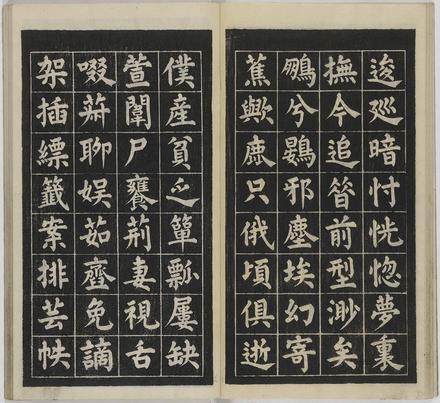 逡廵暗忖恍惚夢裏
撫今追昔前型渺矣
鵬兮鷃邪塵埃幻寄
蕉歟鹿只俄頃俱逝
僕產貧乏簞瓢屢缺
萱闈尸饔荊妻視舌
啜聊娛茹齏免謫
架插縹籤案排芸帙